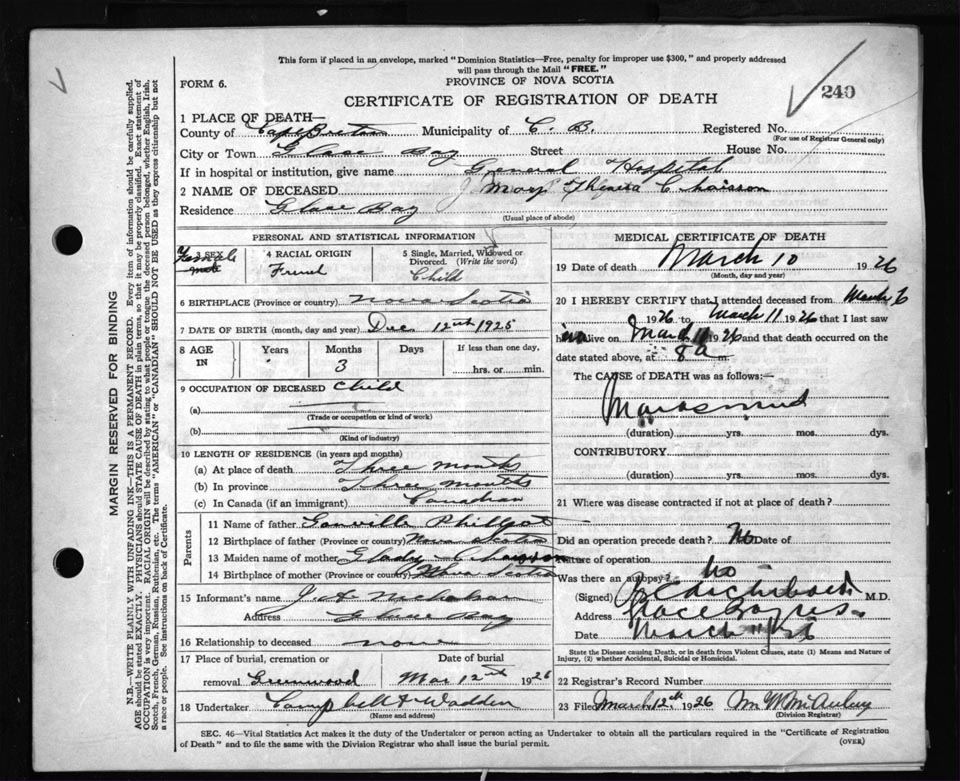 This form if placed in an envelope, marked "Dominion Statistics—Free, penalty for improper use $300," and properly addressed
will pass through the Mail "FREE."
FORM 6.
PROVINCE OF NOVA SCOTIA
240
CERTIFICATE OF REGISTRATION OF DEATH
1 PLACE OF DEATH—
County of Cape Breton Municipality of C. B. Registered No.
(For use of Registrar General only)
City or Town Glace Bay Street House No.
If in hospital or institution, give name General Hospital
2 NAME OF DECEASED Mary Theresa Chaisson
Residence Glace Bay
(Usual place of abode)
PERSONAL AND STATISTICAL INFORMATION
Female
3 SEX
4 RACIAL ORIGIN
French
5 Single, Married, Widowed or
Divorced. (Write the word)
Child
6 BIRTHPLACE (Province or country) Nova Scotia
7 DATE OF BIRTH (month, day and year) Dec 12th 1925
8 AGE IN Years Months Days If less than one day,
3 hrs. or min.
9 OCCUPATION OF DECEASED Child
(a)
(Trade or occupation or kind of work)
(b)
(Kind of industry)
10 LENGTH OF RESIDENCE (in years and months)
(a) At place of death Three months
(b) In province Three months
(c) In Canada (if an immigrant) Canadian
Parents
11 Name of father Phillpot
12 Birthplace of father (Province or country) Nova Scotia
13 Maiden name of mother Glady Chaisson
14 Birthplace of mother (Province or country) Nova Scotia
15 Informant's name J A
Address Glace Bay
16 Relationship to deceased none
17 Place of burial, cremation or Date of burial
removal Greenwood Mar 12th 1926
18 Undertaker Campbell & Wadden
(Name and address)
MEDICAL CERTIFICATE OF DEATH
19 Date of death March 10 1926
(Month, day and year)
20 I HEREBY CERTIFY that I attended deceased from March 6
1926 to March 11 1926 that I last saw
h alive on March 11 1926 and that death occurred on the
date stated above, at 8 a m.
The CAUSE of DEATH was as follows:—
Marasmus
(duration) yrs. mos. dys.
CONTRIBUTORY
(duration) yrs. mos. dys.
21 Where was disease contracted if not at place of death?
Did an operation precede death? No Date of
Nature of operation
Was there an autopsy? No
(Signed) M.D.
Address
Date March
State the Disease causing Death, or in death from Violent Causes, state (1) Means and Nature of
Injury, (2) whether Accidental, Suicidal or Homicidal.
22 Registrar's Record Number
23 Filed March 12th 1926
(Division Registrar)
SEC. 46—Vital Statistics Act makes it the duty of the Undertaker or person acting as Undertaker to obtain all the particulars required in the "Certificate of Registration
of Death" and to file the same with the Division Registrar who shall issue the burial permit.
(OVER)
MARGIN RESERVED FOR BINDING
N.B.—WRITE PLAINLY WITH UNFADING INK—THIS IS A PERMANENT RECORD. Every item of information should be carefully supplied.
AGE should be stated EXACTLY. PHYSICIANS should STATE CAUSE OF DEATH in plain terms, so that it may be properly classified. Exact statement of
OCCUPATION is very important. RACIAL ORIGIN will be described by stating to what people or tongue the deceased person belonged, whether English, Irish,
Scotch, French, German, Russian, Ruthenian, etc. The terms "AMERICAN" or "CANADIAN" SHOULD NOT BE USED as they express citizenship but not
a race or people. See instructions on back of Certificate.